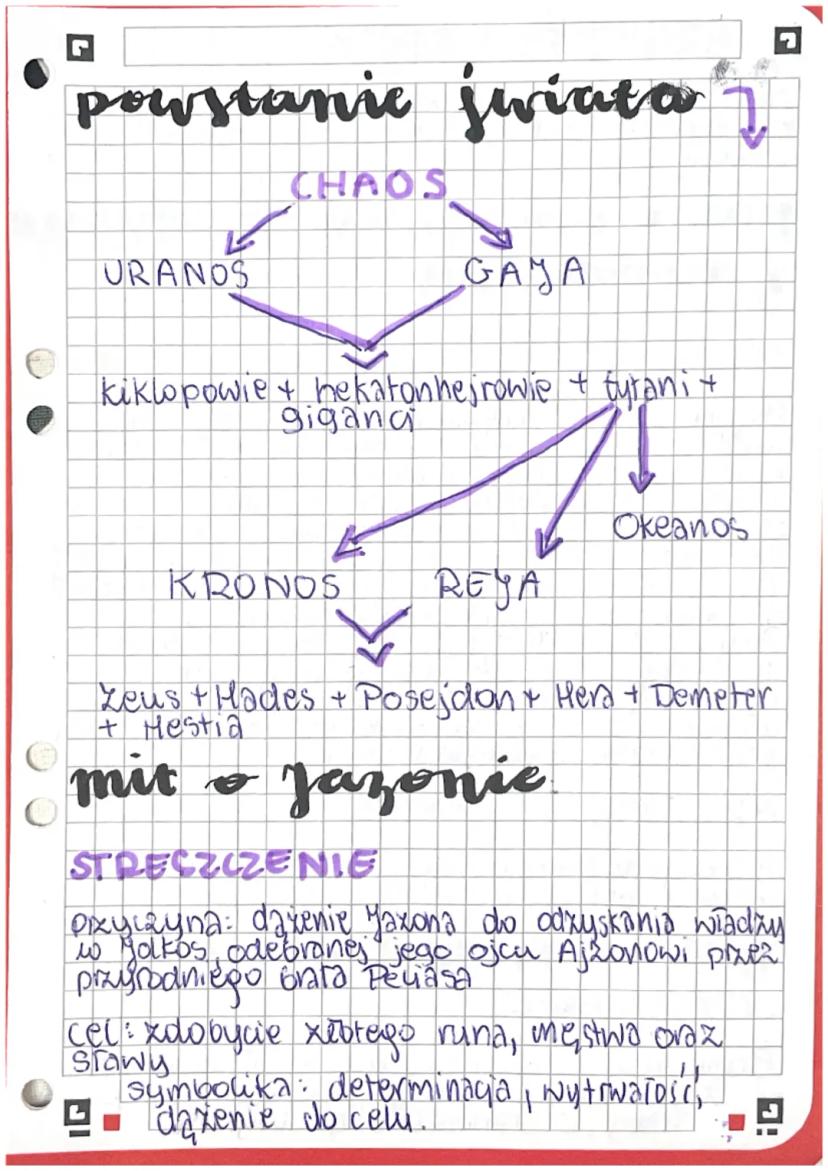 powstanie świata
CHAOS
URANOS GAJA
kiklopowie + hekatonhejrowie + tytani +
giganci
Okeanos
KRONOS REJA
Zeus + Hades + Posejdon + Hera + Demeter
+ Hestia
mit o Jazonie
STRESZCZENIE
przyczyna: dążenie Jazona do odzyskania władzy
w Jolkos, odebranej jego ojcu Ajzonowi przez
przyrodniego brata Peliasa
cel: zdobycie złotego runa, męstwa oraz
sławy
symbolika: determinacja, wytrwałość,
dążenie do celu.